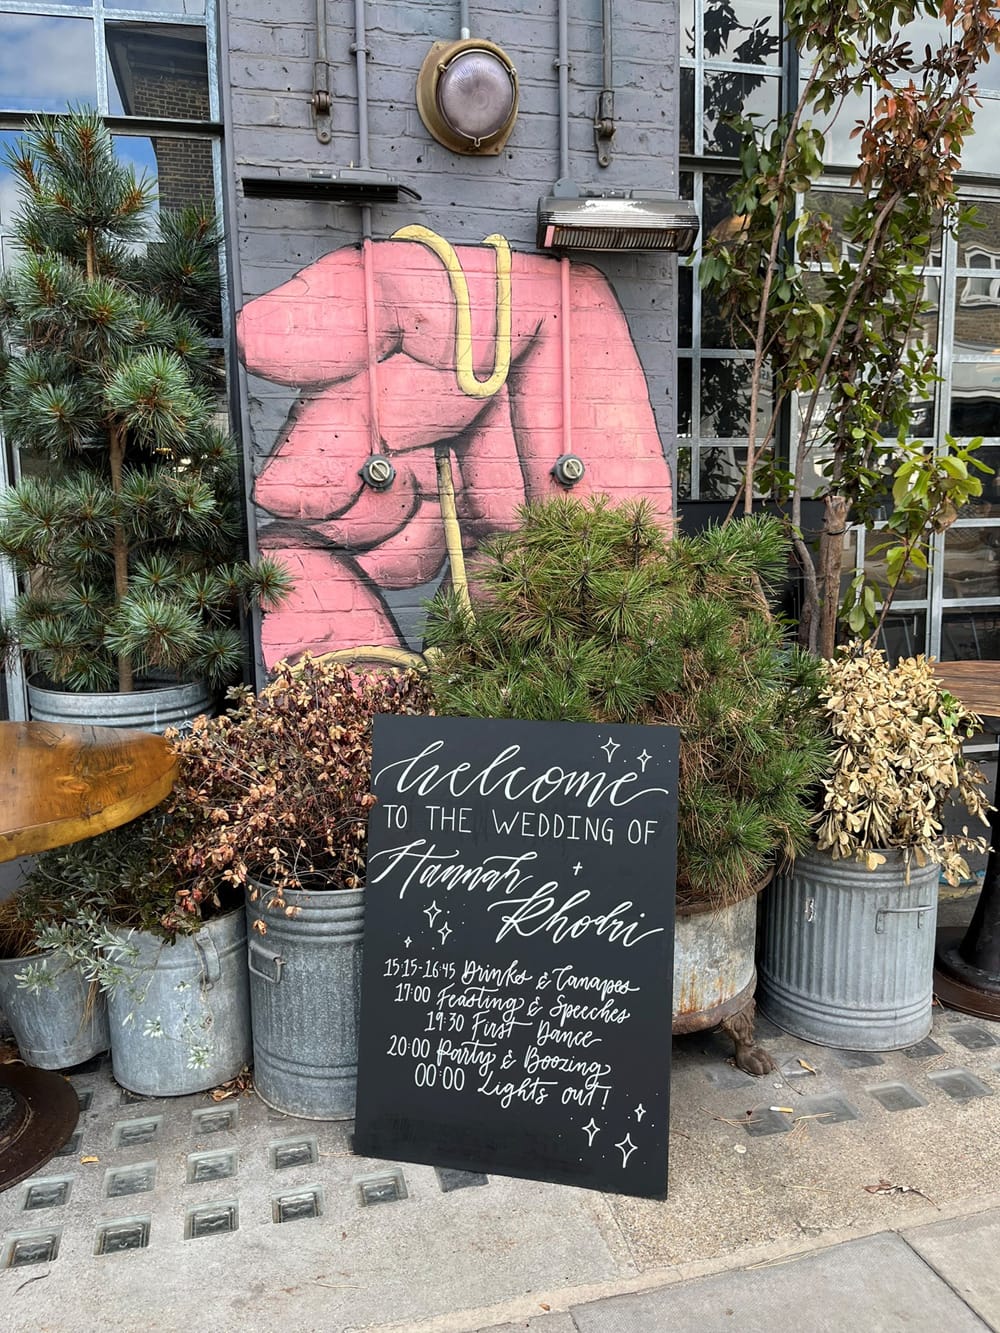 welcome
TO THE WEDDING OF
Hannah +
Rhodri
15:15-16:45 Drinks & Canapes
17:00 Feasting & Speeches
19:30 First Dance
20:00 Party & Boozing
00:00 Lights out!